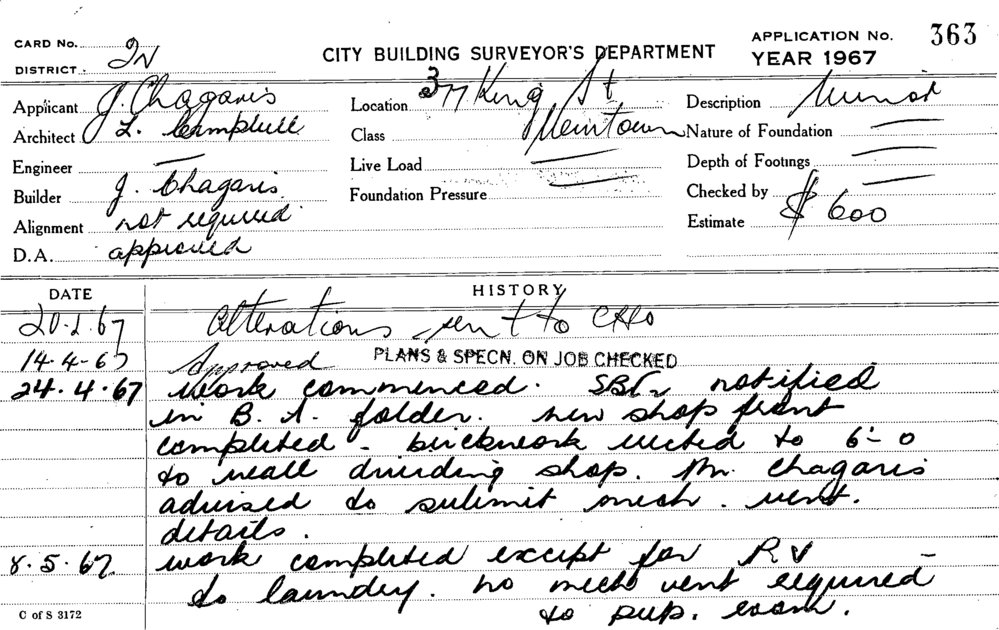 CARD No. 2N
DISTRICT
CITY BUILDING SURVEYOR'S DEPARTMENT
APPLICATION No. 363
YEAR 1967
Applicant J. Chagaris
Architect L. Campbell
Engineer —
Builder J. Chagaris
Alignment not required
D.A. approved
Location 377 King St
Class Newtown
Live Load —
Foundation Pressure —
Description Minor
Nature of Foundation —
Depth of Footings —
Checked by —
Estimate $ 600
DATE HISTORY
20.2.67 Alterations sent to CHO
14-4-67 Approved PLANS & SPECN. ON JOB CHECKED
24.4.67 work commenced. notified
in B.A. folder. new shop front
completed - brickwork erected to 6'-0
to wall dividing shop. Mr. Chagaris
advised to submit mech. vent.
details.
8.5.67 work completed except for R V -
to laundry. no mech vent required
to prep. room.
C of S 3172